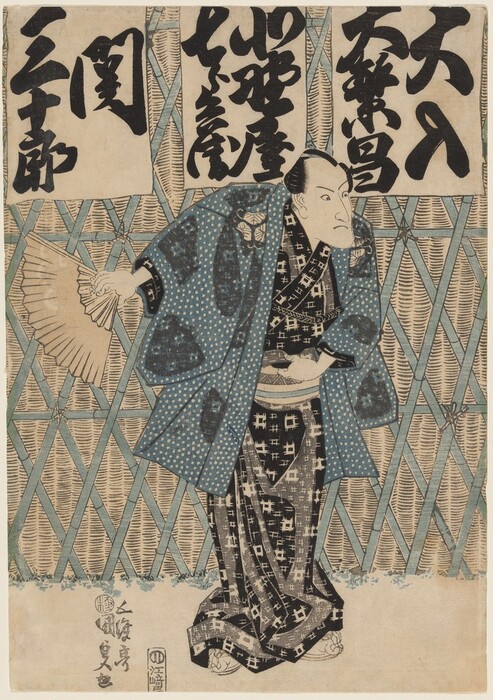 大入
大繁昌
野屋
兵衛
関
三十郎
五渡亭
極
國貞画
江崎